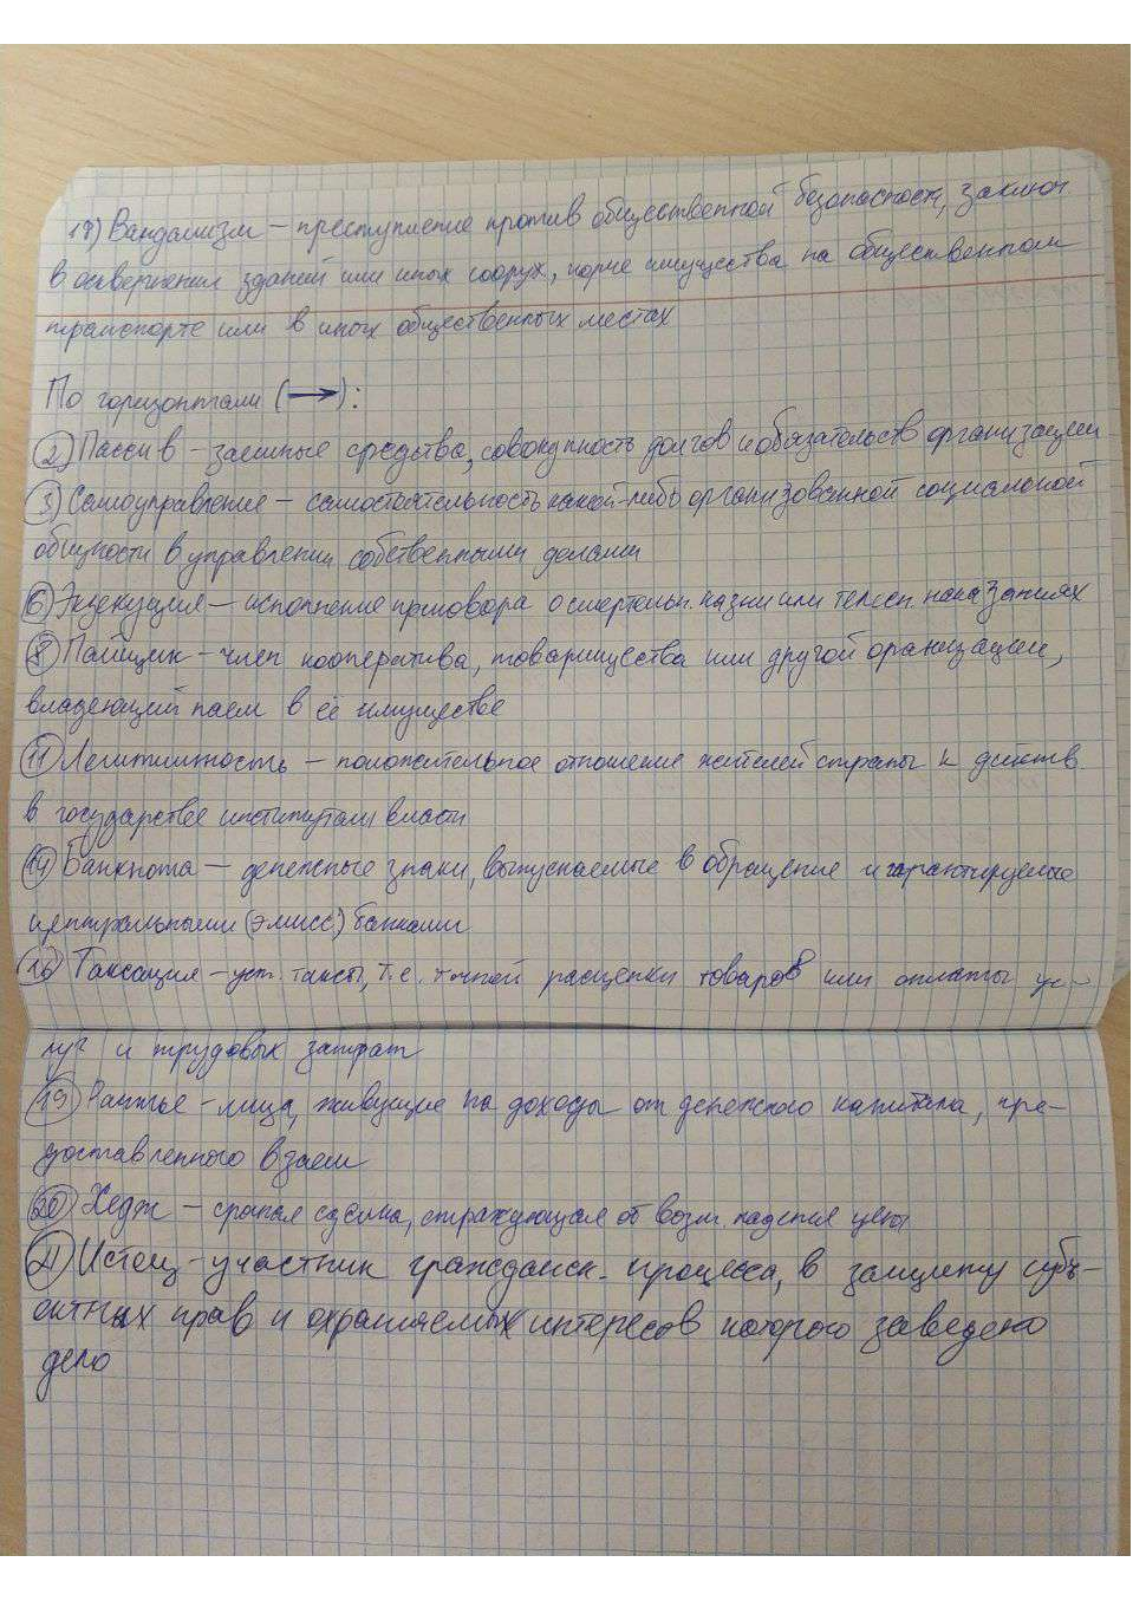 18) Вандализм – преступление против общественной безопасности, заключ
в осквернении зданий или иных сооруж, порче имущества на общественном
транспорте или в иных общественных местах
По горизонтали (→):
2) Пассив – заемные средства, совокупность долгов и обязательств организации
3) Самоуправление – самостоятельность какой-либо организованной социальной
общности в управлении собственными делами
6) Экзекуция – исполнение приговора о смертельн. казни или телесн. наказаниях
8) Пайщик – член кооператива, товарищества или другой организации,
владеющий паем в её имуществе
11) Легитимность – положительное отношение жителей страны к действ.
в государстве институтам власти
14) Банкнота – денежные знаки, выпускаемые в обращение и гарантируемые
центральными (эмисс) банками
16) Таксация – уст. таксы, т.е. точной расценки товаров или оплаты ус-
луг и трудовых затрат
19) Рантье – лица, живущие на доходы от денежного капитала, пре-
доставленного взаем
20) Хедж – срочная сделка, страхующая от возм. падения цены
21) Истец – участник гражданск. процесса, в защиту субъ-
ектных прав и охраняемых интересов которого заведено
дело